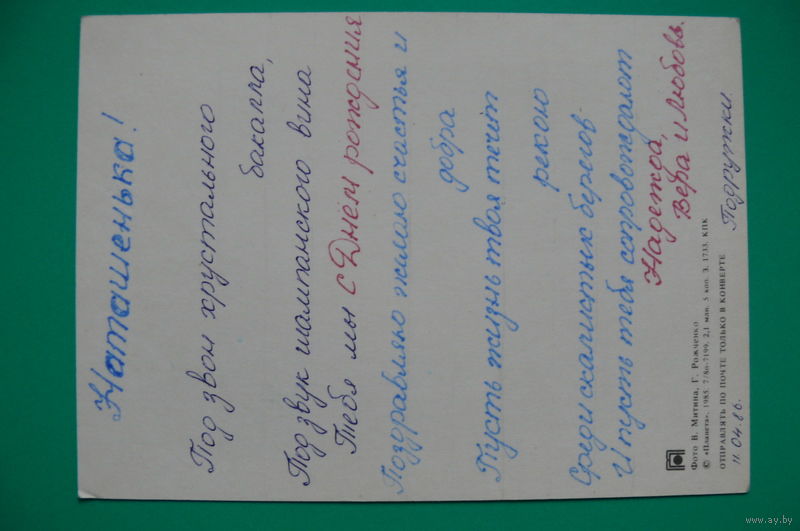 Наташенька!
Под звон хрустального
бакалла,
Под звук шампанского вина
Тебя мы с Днём рождения
Поздравляю желаю счастья и
добра
Пусть жизнь твоя течёт
рекою
Среди скалистых берегов
И пусть тебя сопровождают
Надежда,
Вера и Любовь.
Подружки.
Фото В. Митина, Г. Рожченко
© «Планета». 1985. 7/86-7199. 2,1 млн. 5 коп. З. 1733. КПК
ОТПРАВЛЯТЬ ПО ПОЧТЕ ТОЛЬКО В КОНВЕРТЕ
11.04.86.
www.ay.by